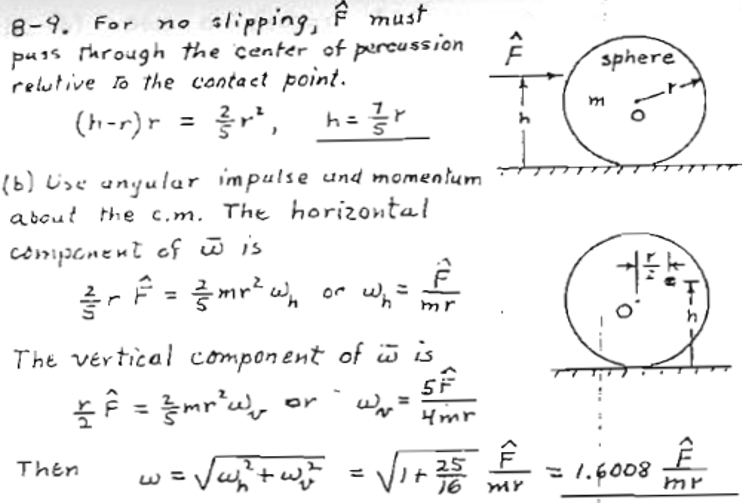 8-9. For no slipping, F̂ must
pass through the center of percussion
relative to the contact point.
(h-r)r = 2/5 r², h = 7/5 r
F̂
h
sphere
m
r
O
(b) Use angular impulse and momentum
about the c.m. The horizontal
component of ω̄ is
2/5 r F̂ = 2/5 mr² ωₕ or ωₕ = F̂/mr
r/2
O
h
The vertical component of ω̄ is
r/2 F̂ = 2/5 mr² ωᵥ or ωᵥ = 5F̂/4mr
Then ω = √(ωₕ² + ωᵥ²) = √(1 + 25/16) F̂/mr = 1.6008 F̂/mr